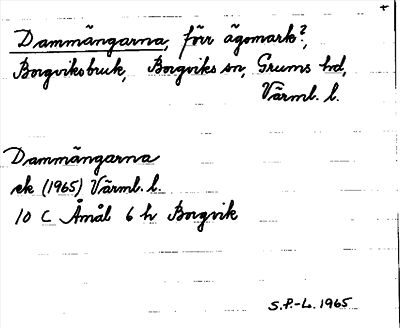 +
Dammängarna, förr ägomark?,
Borgviksbruk, Borgviks sn, Grums hd,
Värml. l.
Dammängarna
ek (1965) Värml. l.
10 C Åmål 6 h Borgvik
S.P.-L. 1965